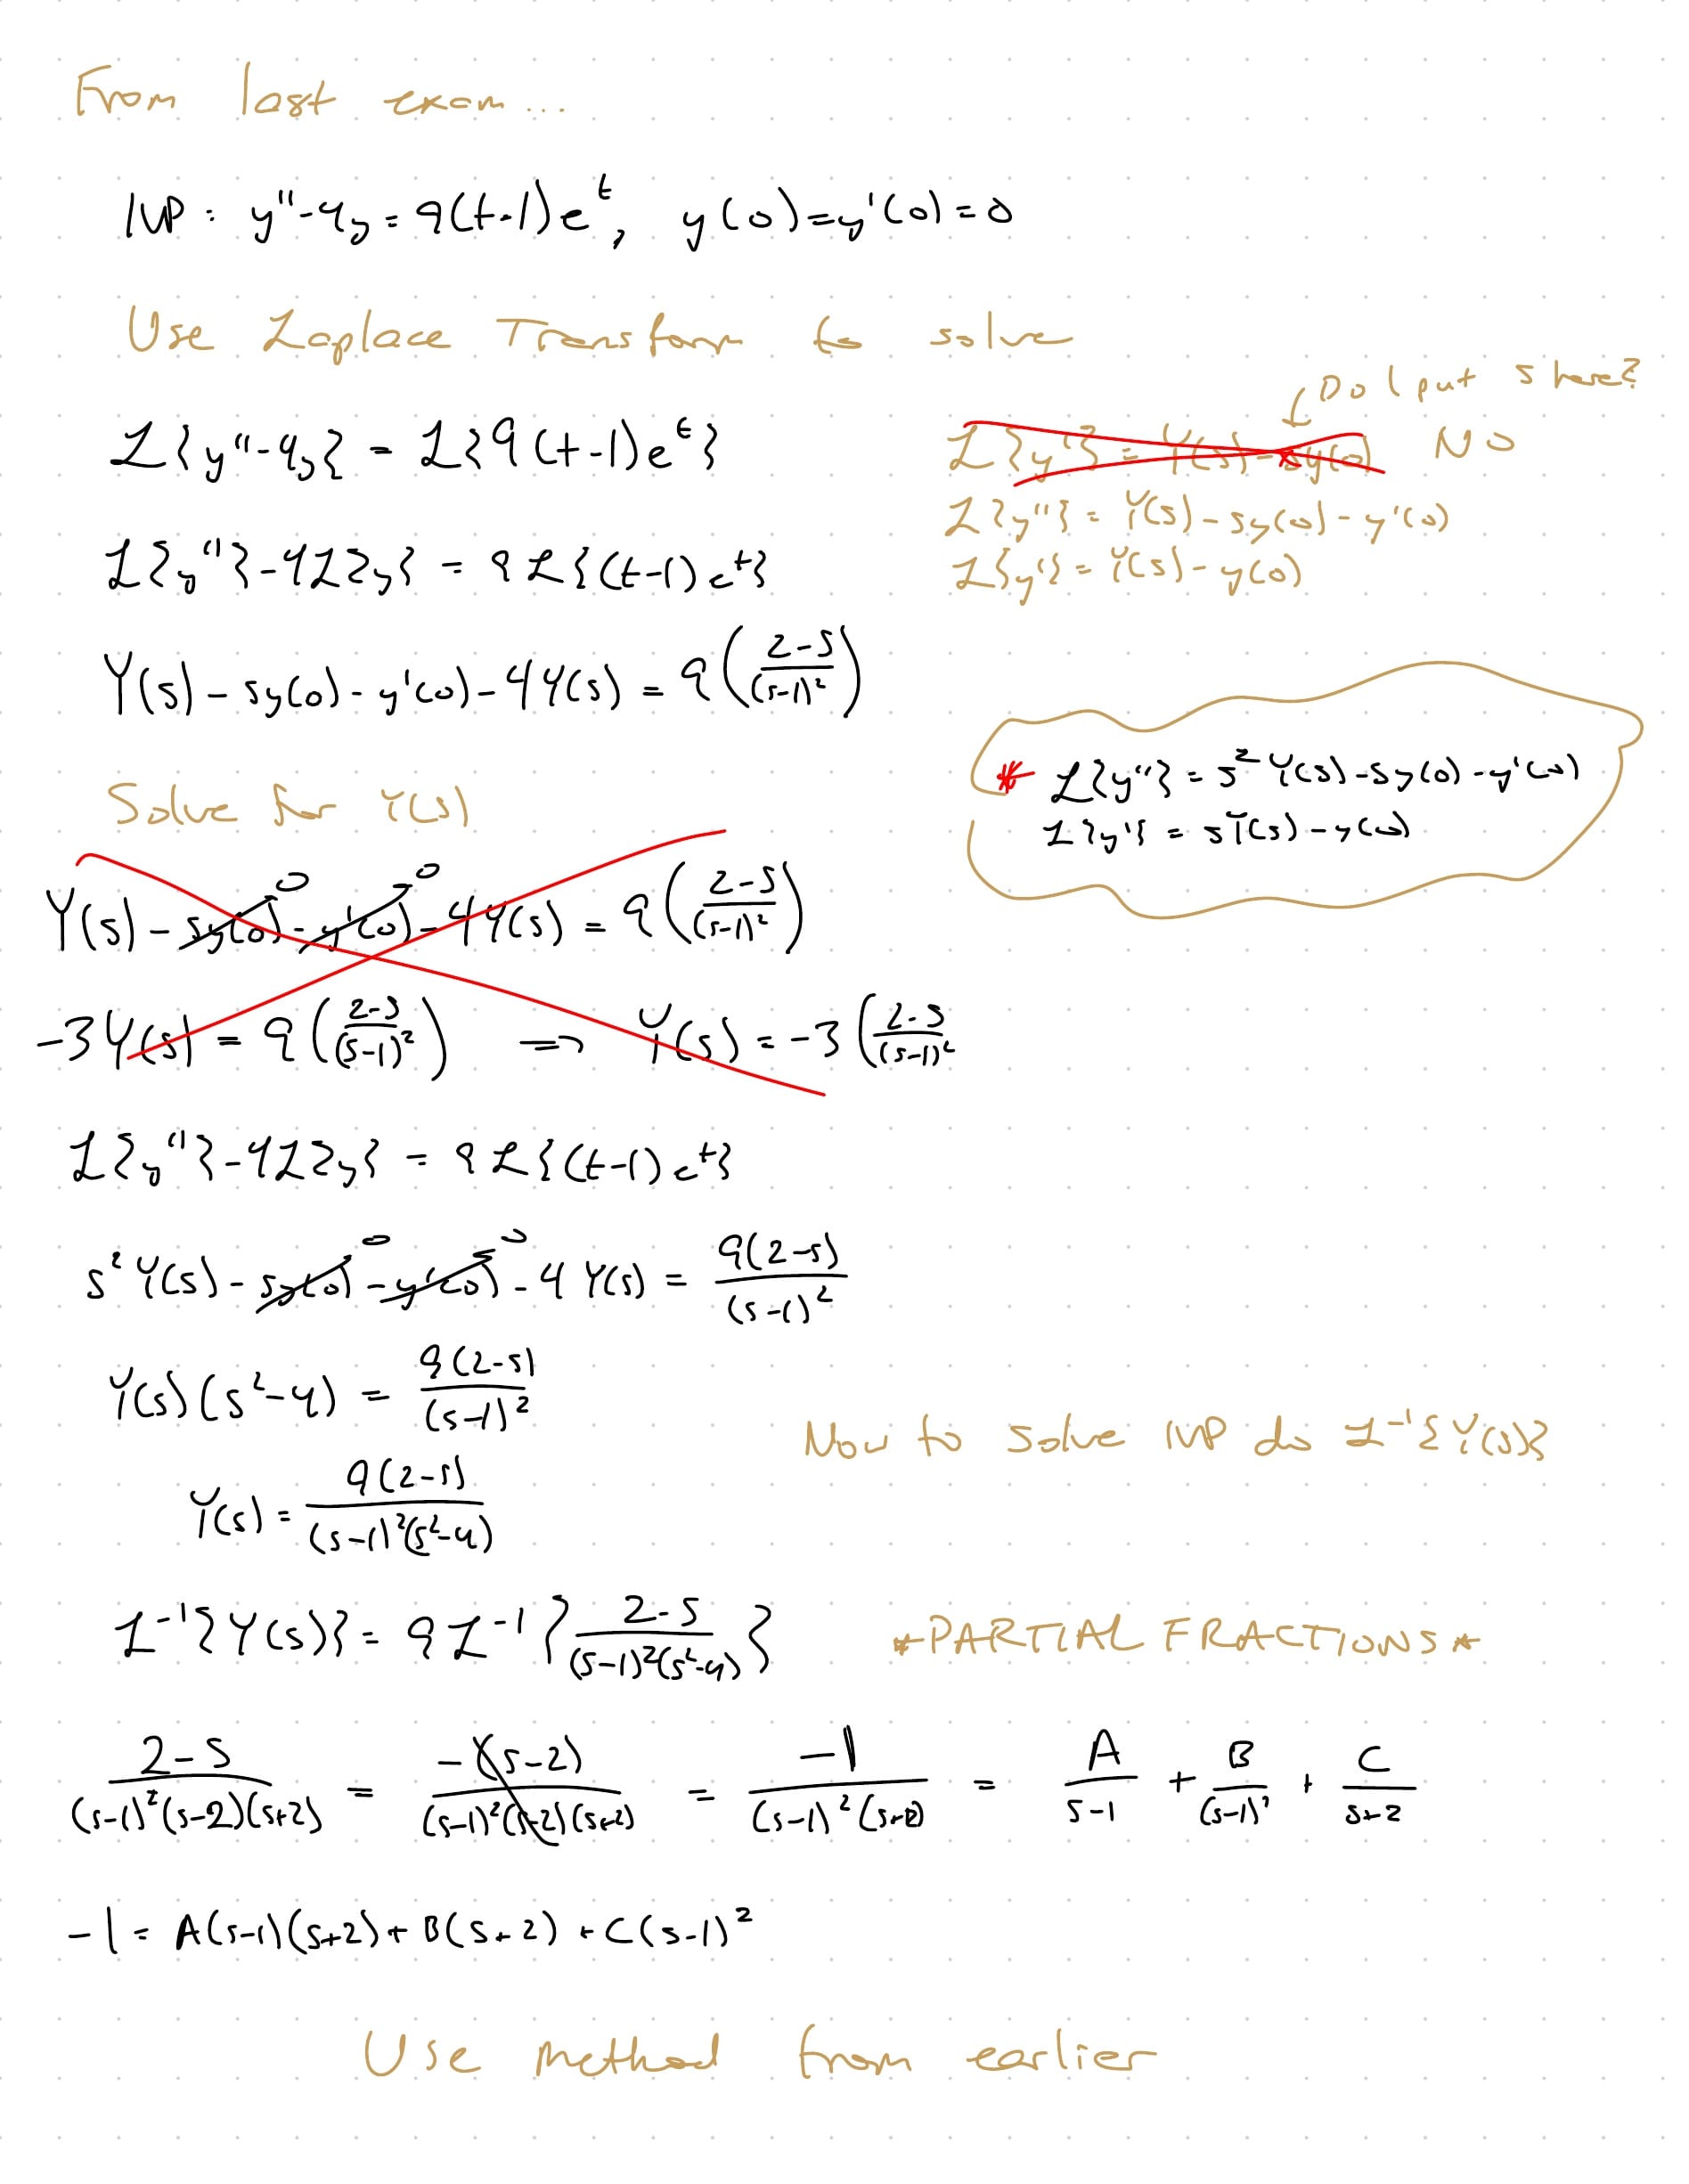 From last exam...
IVP: y''-4y = 9(t-1)e^t, y(0)=y'(0)=0
Use Laplace Transform to solve
↓ Do I put s here?
ℒ{y''-4y} = ℒ{9(t-1)e^t}
ℒ{y'} = Y(s) - sy(0) NO
ℒ{y''} = Y(s) - sy(0) - y'(0)
ℒ{y''}-4ℒ{y} = 9ℒ{(t-1)e^t}
ℒ{y'} = Y(s) - y(0)
Y(s) - sy(0) - y'(0) - 4Y(s) = 9((2-s)/(s-1)^2)
* ℒ{y''} = s^2 Y(s) - sy(0) - y'(0)
ℒ{y'} = sY(s) - y(0)
Solve for Y(s)
Y(s) - sy(0)^0 - y'(0)^0 - 4Y(s) = 9((2-s)/(s-1)^2)
-3Y(s) = 9((2-s)/(s-1)^2) => Y(s) = -3((2-s)/(s-1)^2
ℒ{y''}-4ℒ{y} = 9ℒ{(t-1)e^t}
s^2 Y(s) - sy(0)^0 - y'(0)^0 - 4Y(s) = 9(2-s)/(s-1)^2
Y(s)(s^2-4) = 9(2-s)/(s-1)^2
Now to solve IVP do ℒ^-1{Y(s)}
Y(s) = 9(2-s)/((s-1)^2(s^2-4))
ℒ^-1{Y(s)} = 9ℒ^-1{(2-s)/((s-1)^2(s^2-4))} *PARTIAL FRACTIONS*
(2-s)/((s-1)^2(s-2)(s+2)) = -(s-2)/((s-1)^2(s-2)(s+2)) = -1/((s-1)^2(s+2)) = A/(s-1) + B/(s-1)^2 + C/(s+2)
-1 = A(s-1)(s+2) + B(s+2) + C(s-1)^2
Use method from earlier